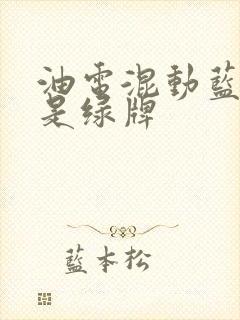 油電混動藍
是绿牌
藍本松